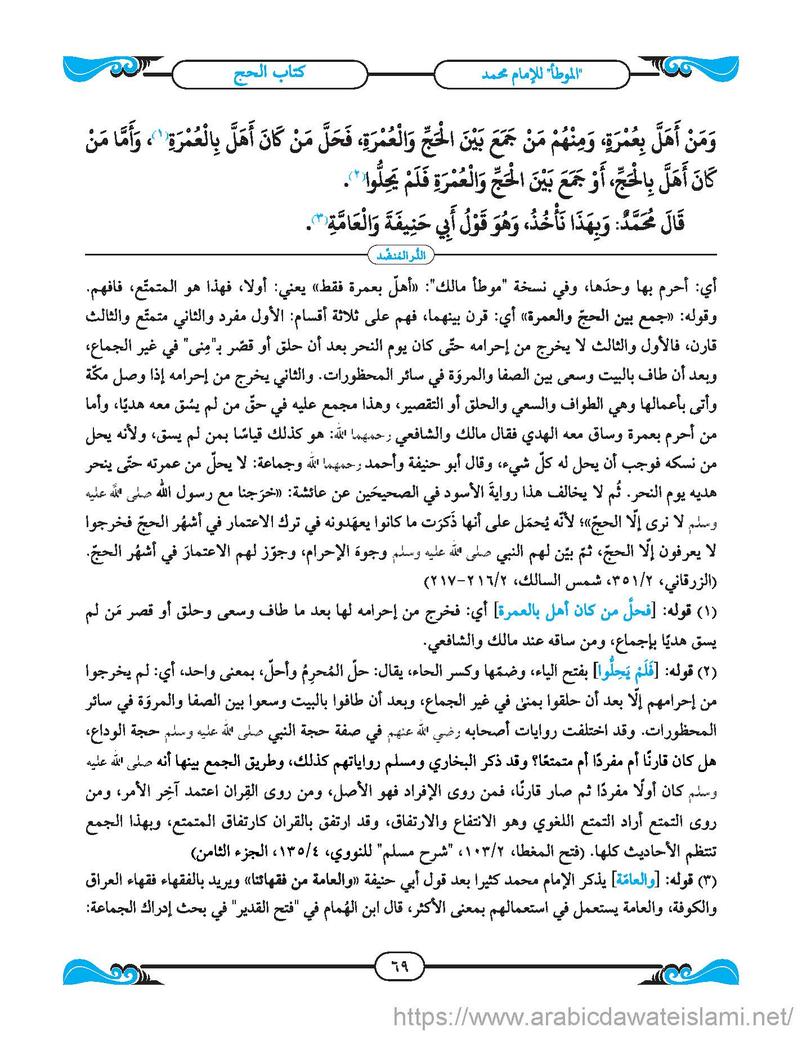 "الموطأ" للإمام محمد
كتاب الحج
وَمَنْ أَهَلَّ بِعُمْرَةٍ، وَمِنْهُمْ مَنْ جَمَعَ بَيْنَ الْحَجِّ وَالْعُمْرَةِ، فَحَلَّ مَنْ كَانَ أَهَلَّ بِالْعُمْرَةِ(١)، وَأَمَّا مَنْ
كَانَ أَهَلَّ بِالْحَجِّ، أَوْ جَمَعَ بَيْنَ الْحَجِّ وَالْعُمْرَةِ فَلَمْ يَحِلُّوا(٢).
قَالَ مُحَمَّدٌ: وَبِهَذَا نَأْخُذُ، وَهُوَ قَوْلُ أَبِي حَنِيفَةَ وَالْعَامَّةِ(٣).
الدُّر المُنضَّد
أي: أحرم بها وحدَها، وفي نسخة "موطأ مالك": «أهلّ بعمرة فقط» يعني: أولا، فهذا هو المتمتّع، فافهم.
وقوله: «جمع بين الحجّ والعمرة» أي: قرن بينهما، فهم على ثلاثة أقسام: الأول مفرد والثاني متمتّع والثالث
قارن، فالأول والثالث لا يخرج من إحرامه حتّى كان يوم النحر بعد أن حلق أو قصّر بـ"مِنى" في غير الجماع،
وبعد أن طاف بالبيت وسعى بين الصفا والمروَة في سائر المحظورات. والثاني يخرج من إحرامه إذا وصل مكّة
وأتى بأعمالها وهي الطواف والسعي والحلق أو التقصير، وهذا مجمع عليه في حقّ من لم يسُق معه هديًا، وأما
من أحرم بعمرة وساق معه الهدي فقال مالك والشافعي رحمهما الله: هو كذلك قياسًا بمن لم يسق، ولأنه يحل
من نسكه فوجب أن يحل له كلّ شيء، وقال أبو حنيفة وأحمد رحمهما الله وجماعة: لا يحلّ من عمرته حتّى ينحر
هديه يوم النحر. ثُم لا يخالف هذا روايةَ الأسود في الصحيحَين عن عائشة: «خرَجنا مع رسول الله صلى الله عليه
وسلم لا نرى إلّا الحجّ»؛ لأنّه يُحمَل على أنها ذَكرَت ما كانوا يعهَدونه في ترك الاعتمار في أشهُر الحجّ فخرجوا
لا يعرفون إلّا الحجّ، ثمّ بيّن لهم النبي صلى الله عليه وسلم وجوهَ الإحرام، وجوّز لهم الاعتمارَ في أشهُر الحجّ.
(الزرقاني، ٢/٣٥١، شمس السالك، ٢/٢١٦-٢١٧)
(١) قوله: [فحلَّ من كان أهل بالعمرة] أي: فخرج من إحرامه لها بعد ما طاف وسعى وحلق أو قصر مَن لم
يسق هديًا بإجماع، ومن ساقه عند مالك والشافعي.
(٢) قوله: [فَلَمْ يَحِلُّوا] بفتح الياء، وضمّها وكسر الحاء، يقال: حلّ المُحرِمُ وأحلّ، بمعنى واحد، أي: لم يخرجوا
من إحرامهم إلّا بعد أن حلقوا بمنىٰ في غير الجماع، وبعد أن طافوا بالبيت وسعوا بين الصفا والمروَة في سائر
المحظورات. وقد اختلفت روايات أصحابه رضي الله عنهم في صفة حجة النبي صلى الله عليه وسلم حجة الوداع،
هل كان قارنًا أم مفردًا أم متمتعًا؟ وقد ذكر البخاري ومسلم رواياتهم كذلك، وطريق الجمع بينها أنه صلى الله عليه
وسلم كان أولًا مفردًا ثم صار قارنًا، فمن روى الإفراد فهو الأصل، ومن روى القِران اعتمد آخِر الأمر، ومن
روى التمتع أراد التمتع اللغوي وهو الانتفاع والارتفاق، وقد ارتفق بالقران كارتفاق المتمتع، وبهذا الجمع
تنتظم الأحاديث كلها. (فتح المغطا، ٢/١٠٣، "شرح مسلم" للنووي، ٤/١٣٥، الجزء الثامن)
(٣) قوله: [والعامّة] يذكر الإمام محمد كثيرا بعد قول أبي حنيفة «والعامة من فقهائنا» ويريد بالفقهاء فقهاء العراق
والكوفة، والعامة يستعمل في استعمالهم بمعنى الأكثر، قال ابن الهُمام في "فتح القدير" في بحث إدراك الجماعة:
٦٩
https://www.arabicdawateislami.net/